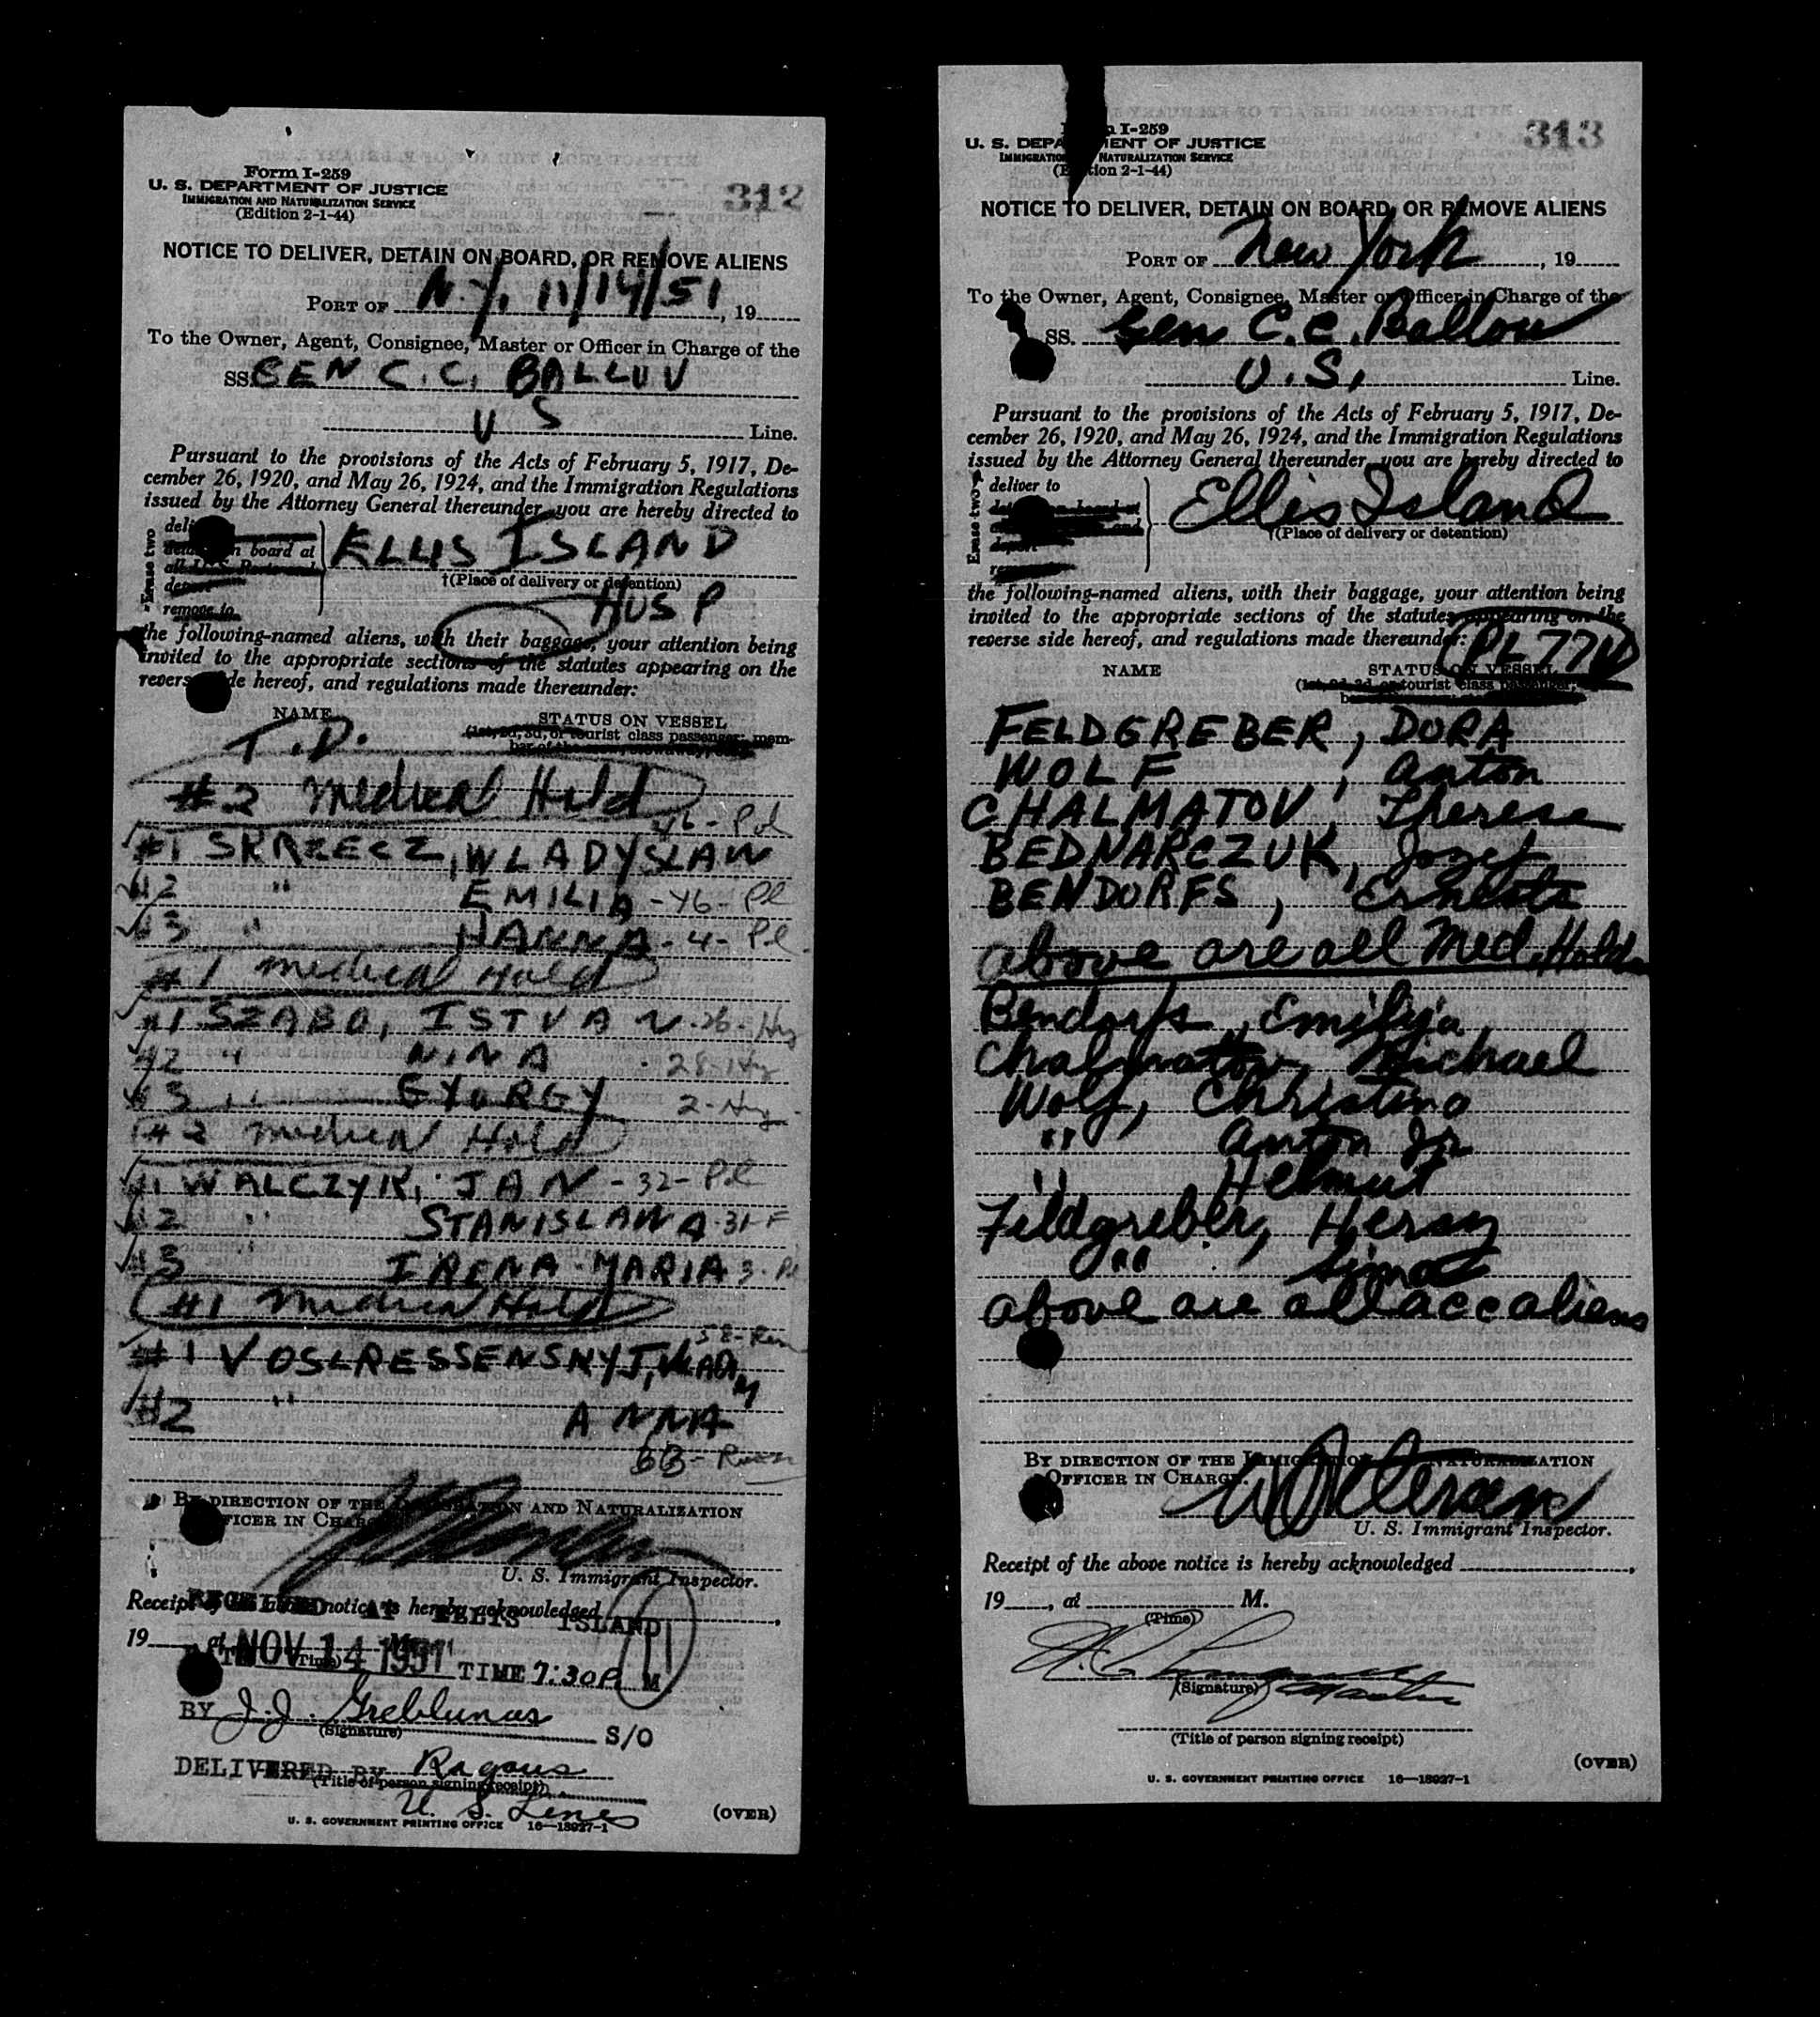 Form I-259
U. S. DEPARTMENT OF JUSTICE
IMMIGRATION AND NATURALIZATION SERVICE
(Edition 2-1-44)
312
NOTICE TO DELIVER, DETAIN ON BOARD, OR REMOVE ALIENS
PORT OF N.Y. 11/14/51, 19
To the Owner, Agent, Consignee, Master or Officer in Charge of the
SS GEN C.C. BALLOU
U S Line.
Pursuant to the provisions of the Acts of February 5, 1917, De-
cember 26, 1920, and May 26, 1924, and the Immigration Regulations
issued by the Attorney General thereunder, you are hereby directed to
ELLIS ISLAND
on board at
remove to
"Erase two
†(Place of delivery or detention)
HOSP
the following-named aliens, with their baggage, your attention being
invited to the appropriate sections of the statutes appearing on the
reverse side hereof, and regulations made thereunder:
NAME STATUS ON VESSEL
T.D.
(1st, 2d, 3d, or tourist class passenger; mem-
#2 medical Hold
46- Pol
#1 SKRZECZ, WLADYSLAW
#2 " EMILIA - 46- Pl
#3 " HANNA - 4- Pl.
#1 medical Hold
#1 SZABO, ISTVAN - 26- Hg
#2 " NINA - 28- Hg
#3 " GYORGY 2- Hg
#2 medical Hold
#1 WALCZYK, JAN - 32- Pol
#2 " STANISLAWA - 31-
#3 IRENA-MARIA 3- Pl
#1 medical Hold
58-
#1
#2 " ANNA
BY DIRECTION OF THE IMMIGRATION AND NATURALIZATION
OFFICER IN CHARGE.
U. S. Immigrant Inspector.
Receipt of the above notice is hereby acknowledged
RECEIVED AT ELLIS ISLAND
19
NOV 14 1951 TIME 7:30 P M
BY J.J. Greblunas S/O
(Signature)
DELIVERED BY Ragous
(Title of person signing receipt)
U. S. Lines
U. S. GOVERNMENT PRINTING OFFICE 16—18927-1
(OVER)
Form I-259
U. S. DEPARTMENT OF JUSTICE
IMMIGRATION NATURALIZATION SERVICE
(Edition 2-1-44)
313
NOTICE TO DELIVER, DETAIN ON BOARD, OR REMOVE ALIENS
PORT OF New York, 19
To the Owner, Agent, Consignee, Master or Officer in Charge of the
SS. Gen C.C. Ballou
U.S. Line.
Pursuant to the provisions of the Acts of February 5, 1917, De-
cember 26, 1920, and May 26, 1924, and the Immigration Regulations
issued by the Attorney General thereunder, you are hereby directed to
deliver to
Ellis Island
Erase two
†(Place of delivery or detention)
the following-named aliens, with their baggage, your attention being
invited to the appropriate sections of the statutes appearing on the
reverse side hereof, and regulations made thereunder:
PL 774
NAME STATUS ON VESSEL
(1st, 2d, 3d, or tourist class passenger;
FELDGREBER, DORA
WOLF, Anton
CHALMATOV, Therese
BEDNARCZUK, Jozef
BENDORFS, Ernests
above are all Med. Holds
Bendorfs, Emilija
Chalmatov, Michael
Wolf, Christina
" Anton Jr
" Helmut
Feldgreber, Hersz
" Simon
above are all acc aliens
BY DIRECTION OF THE IMMIGRATION NATURALIZATION
OFFICER IN CHARGE.
U. S. Immigrant Inspector.
Receipt of the above notice is hereby acknowledged
19, at M.
(Time)
(Signature)
(Title of person signing receipt)
(OVER)
U. S. GOVERNMENT PRINTING OFFICE 16—18927-1